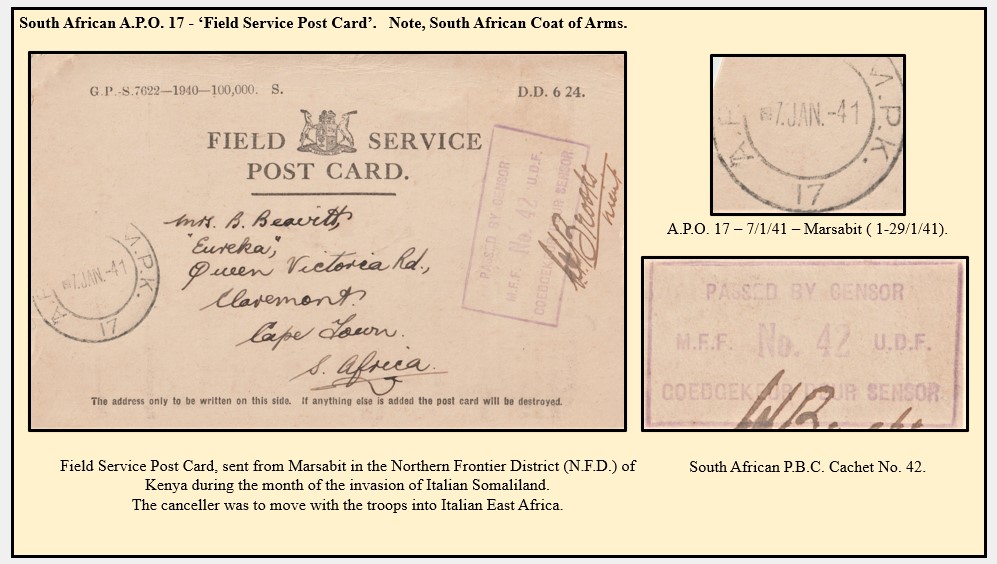 South African A.P.O. 17 - ‘Field Service Post Card’.   Note, South African Coat of Arms.
G.P.-S.7622—1940—100,000.  S.
D.D. 6 24.
FIELD SERVICE
POST CARD.
Mrs. B. Beavitt,
"Eureka",
Queen Victoria Rd.,
Claremont.
Cape Town.
S. Africa.
7.JAN.-41
A.P.K.
17
PASSED BY CENSOR
M.F.F. No. 42 U.D.F.
GOEDGEKEUR DEUR SENSOR
The address only to be written on this side.  If anything else is added the post card will be destroyed.
7.JAN.-41
A.P.K.
17
A.P.O. 17 – 7/1/41 – Marsabit ( 1-29/1/41).
PASSED BY CENSOR
M.F.F. No. 42 U.D.F.
GOEDGEKEUR DEUR SENSOR
Field Service Post Card, sent from Marsabit in the Northern Frontier District (N.F.D.) of
Kenya during the month of the invasion of Italian Somaliland.
The canceller was to move with the troops into Italian East Africa.
South African P.B.C. Cachet No. 42.